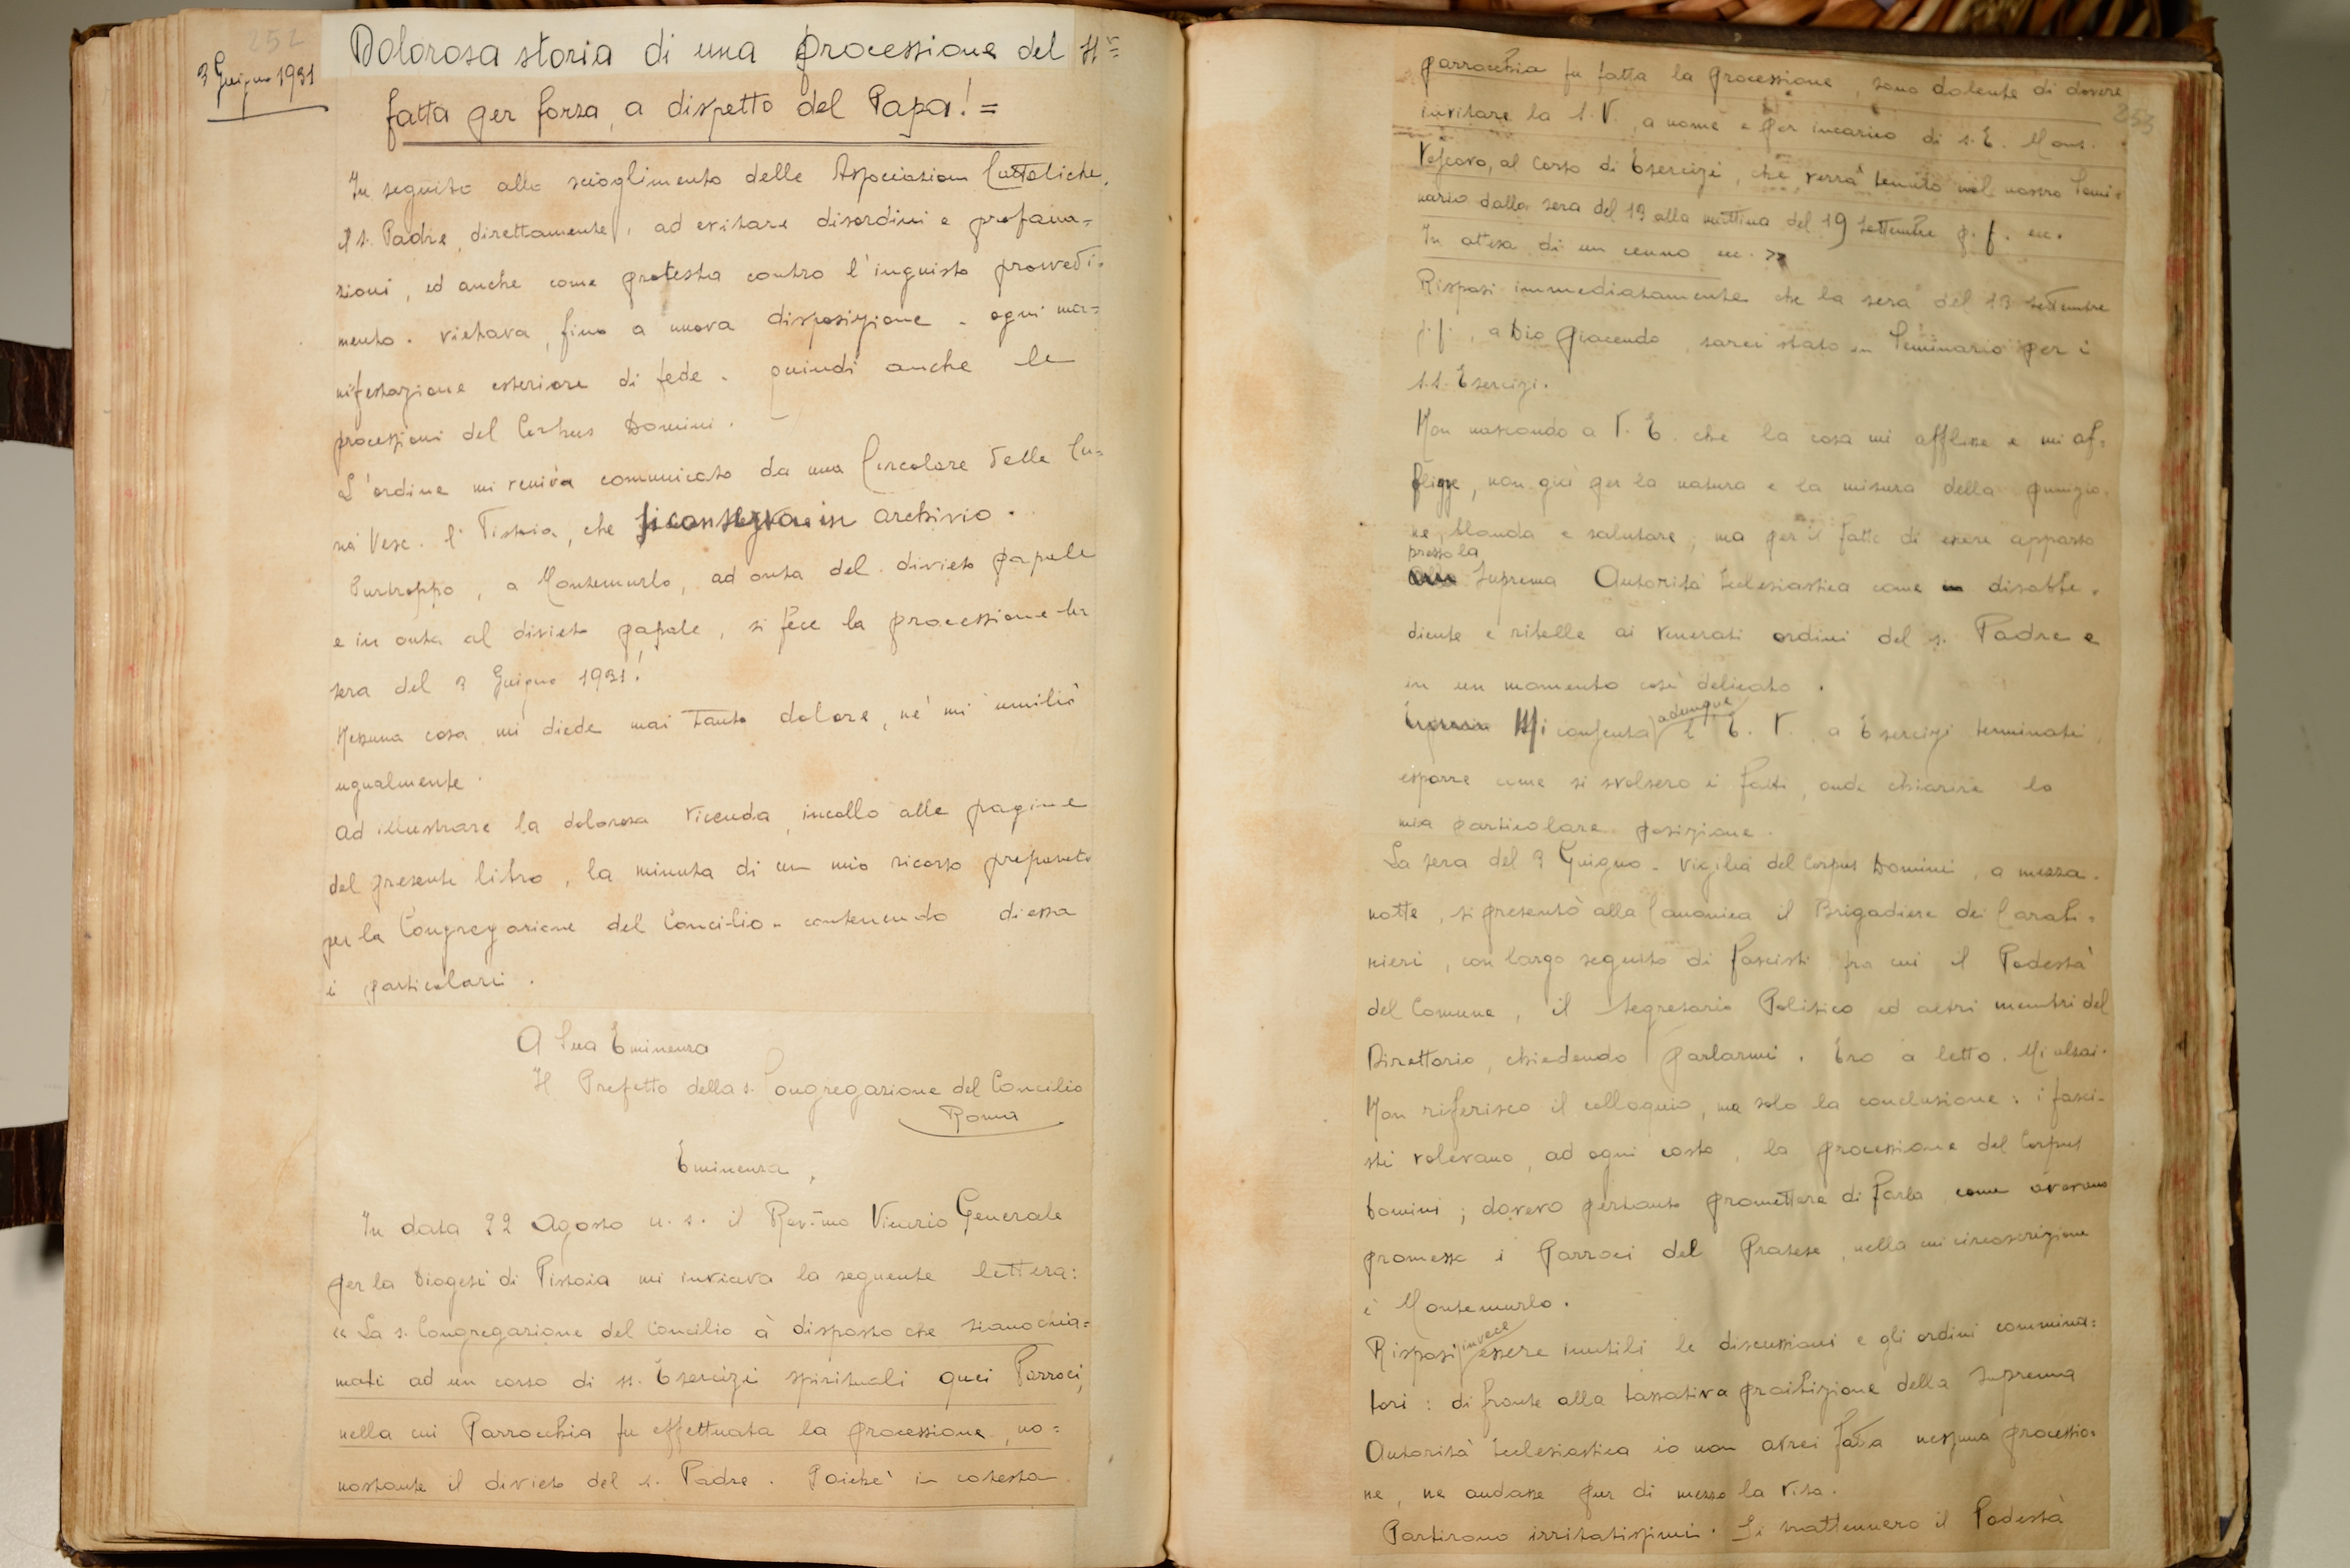 252
3 Giugno 1931
Dolorosa storia di una processione del
fatta per forza, a dispetto del Papa! =
In seguito allo scioglimento delle Associazioni Cattoliche,
il S. Padre, direttamente, ad evitare disordini e profana=
zioni, ed anche come protesta contro l'ingiusto provvedi=
mento. vietava, fino a nuova disposizione - ogni ma=
nifestazione esteriore di fede - quindi anche le
processioni del Corpus Domini.
L'ordine mi veniva comunicato da una Circolare della Cu=
ria Vesc. di Pistoia, che si conserva in archivio.
Purtroppo, a Montemurlo, ad onta del divieto papale
e in onta al divieto papale, si fece la processione la
sera del 3 Giugno 1931!
Nessuna cosa mi diede mai tanto dolore, nè mi umiliò
ugualmente.
Ad illustrare la dolorosa vicenda, incollo alle pagine
del presente libro, la minuta di un mio ricorso preparato
per la Congregazione del Concilio - contenendo di essa
i particolari.
A Sua Eminenza
Il Prefetto della S. Congregazione del Concilio
Roma
Eminenza,
In data 22 Agosto u. s. il Rev.mo Vicario Generale
per la Diogesi di Pistoia mi inviava la seguente lettera:
« La S. Congregazione del Concilio à disposto che siano chia=
mati ad un corso di SS. Esercizi spirituali quei Parroci,
nella cui Parrocchia fu effettuata la processione, no=
nostante il divieto del S. Padre. Poichè in cotesta
253
parrocchia fu fatta la processione, sono dolente di dovere
invitare la S. V., a nome e per incarico di S. E. Mons.
Vescovo, al corso di Esercizi, che verrà tenuto nel nostro Semi=
nario dalla sera del 13 alla mattina del 19 Settembre p. f. ecc.
In attesa di un cenno ecc. »
Risposi immediatamente che la sera del 13 settembre
p. f., a Dio piacendo, sarei stato in Seminario per i
S.S. Esercizi.
Non nascondo a V. E. che la cosa mi afflisse e mi af=
fligge, non già per la natura e la misura della punizio=
ne, blanda e salutare, ma per il fatto di essere apparso
presso la
Suprema Autorità Ecclesiastica come disobbe=
diente e ribelle ai venerati ordini del S. Padre e
in un momento così delicato.
adunque
Mi consenta l'E. V., a Esercizi terminati,
esporre come si svolsero i fatti, onde chiarire la
mia particolare posizione.
La sera del 3 Giugno - vigilia del Corpus Domini, a mezza=
notte, si presentò alla Canonica il Brigadiere dei Carabi=
nieri, con largo seguito di fascisti fra cui il Podestà
del Comune, il Segretario Politico ed altri membri del
Direttorio, chiedendo parlarmi. Ero a letto. Mi alzai.
Non riferisco il colloquio, ma solo la conclusione: i fasci=
sti volevano, ad ogni costo, la processione del Corpus
Domini; dovevo pertanto promettere di farla come avevano
promesso i Parroci del Pratese, nella cui circoscrizione
è Montemurlo.
invece
Risposi essere inutili le discussioni e gli ordini commina=
tori: di fronte alla tassativa proibizione della Suprema
Autorità Ecclesiastica io non avrei fatta nessuna processio=
ne, ne andasse pur di mezzo la vita.
Partirono irritatissimi. Si trattennero il Podestà